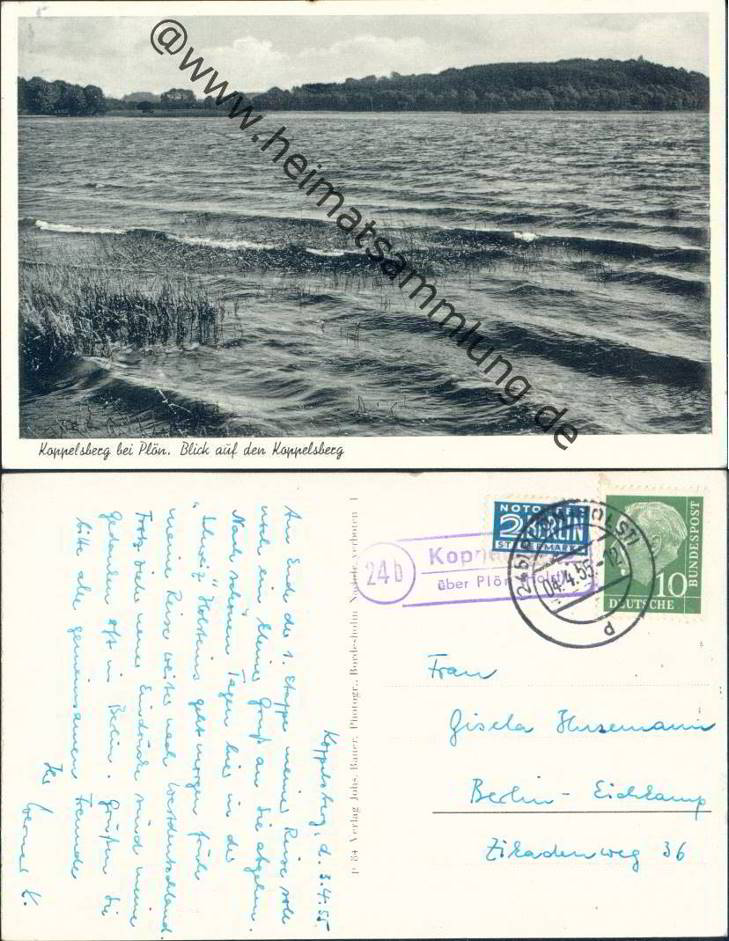 @www.heimatsammlung.de
Koppelsberg bei Plön. Blick auf den Koppelsberg
Koppelsberg, d. 3.4.55.
Am Ende der 1. Etappe meiner Reise soll
noch ein kleiner Gruß an Sie abgehen.
Nach schönen Tagen hier in der
"Schweiz" Holsteins geht morgen früh
meine Reise weiter nach Westdeutschland.
Trotz vieler neuer Eindrücke sind meine
Gedanken oft in Berlin. Grüßen Sie
bitte alle gemeinsamen Freunde
Ihr
Werner K.
P 84 Verlag Johs. Bauer, Photogr., Bordesholm
verboten!
NOTOPFER
2 BERLIN
STEUERMARKE
DEUTSCHE
BUNDESPOST
10
24b
Kopp
über Plön
04.4.55.-12
Frau
Gisela Husemann
Berlin-Eichkamp
Zikadenweg 36